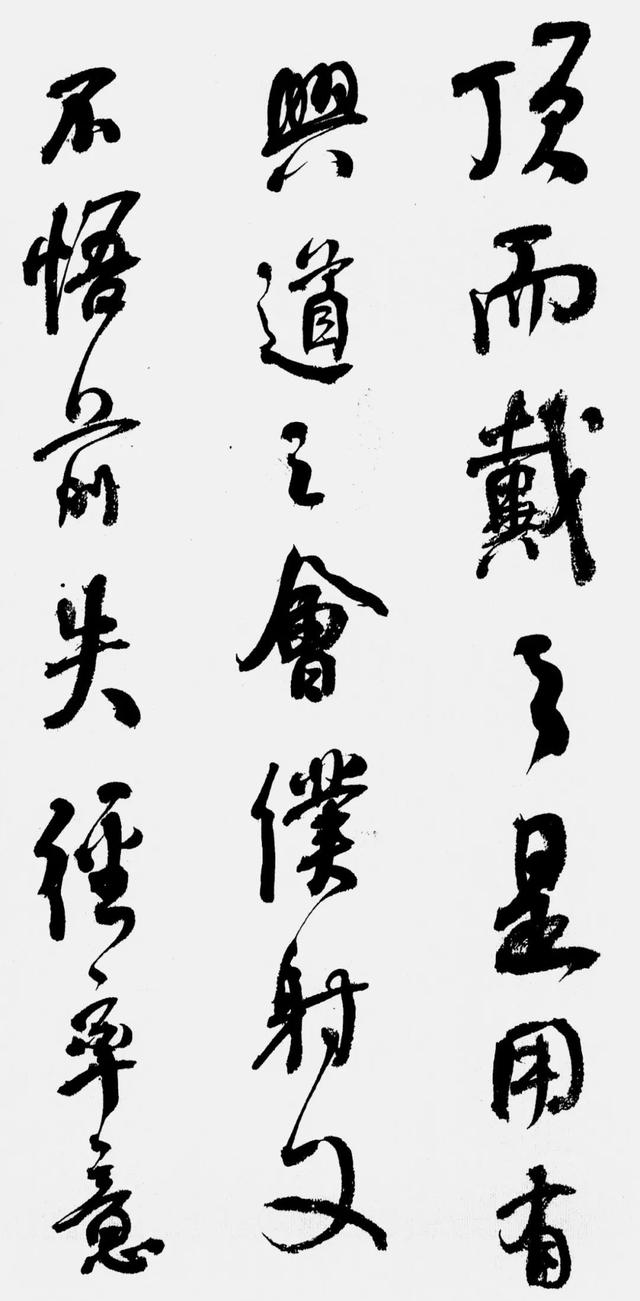 頂而戴之是用有
興道之會僕射又
不悟前失徑率意